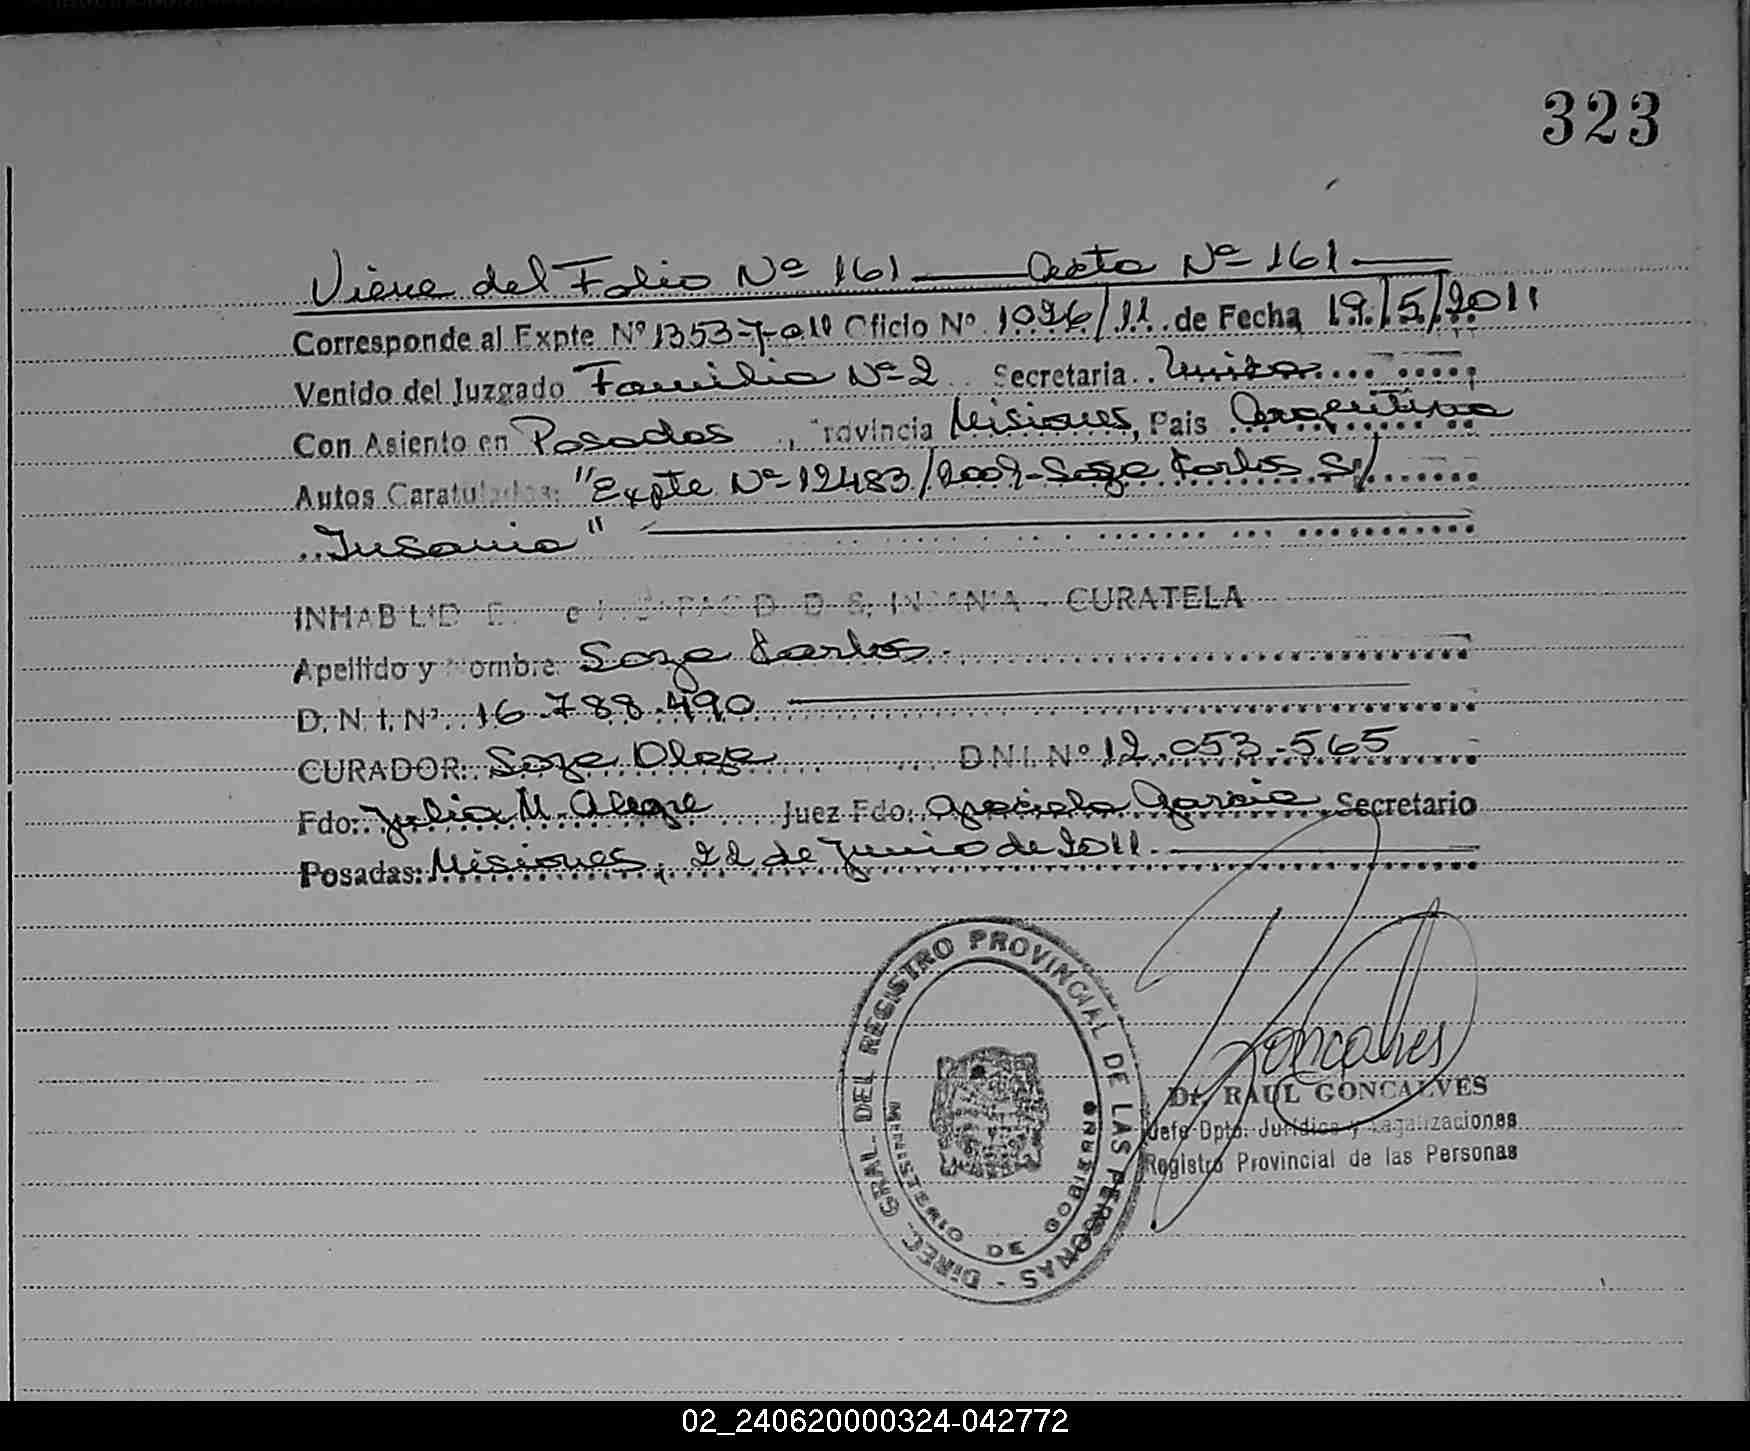 323
Viene del Folio Nº 161 — Acta Nº 161 —
Corresponde al Expte Nº 13537-011 Oficio Nº 1026/11 de Fecha 19/5/2011
Venido del Juzgado Familia Nº 2 Secretaria Unica
Con Asiento en Posadas, Provincia Misiones, Pais Argentina
Autos Caratulados: "Expte Nº 12483/2009 - Soza Karlos S/
Insania"
INHABILID INCAPACIDADES, INSANIA - CURATELA
Apellido y Nombre: Soza Karlos
D.N.I. Nº 16.788.490
CURADOR: Soza Olga D.N.I. Nº 12.053.565
Fdo: Julia M. Alegre Juez Fdo: Graciela Garcia Secretario
Posadas: Misiones, 22 de Junio de 2011.
DIREC. GRAL. DEL REGISTRO PROVINCIAL DE LAS PERSONAS -
MINISTERIO DE GOBIERNO
Goncalves
Dr. RAUL GONCALVES
Jefe Dpto. Jurídico y Legalizaciones
Registro Provincial de las Personas
02_240620000324-042772